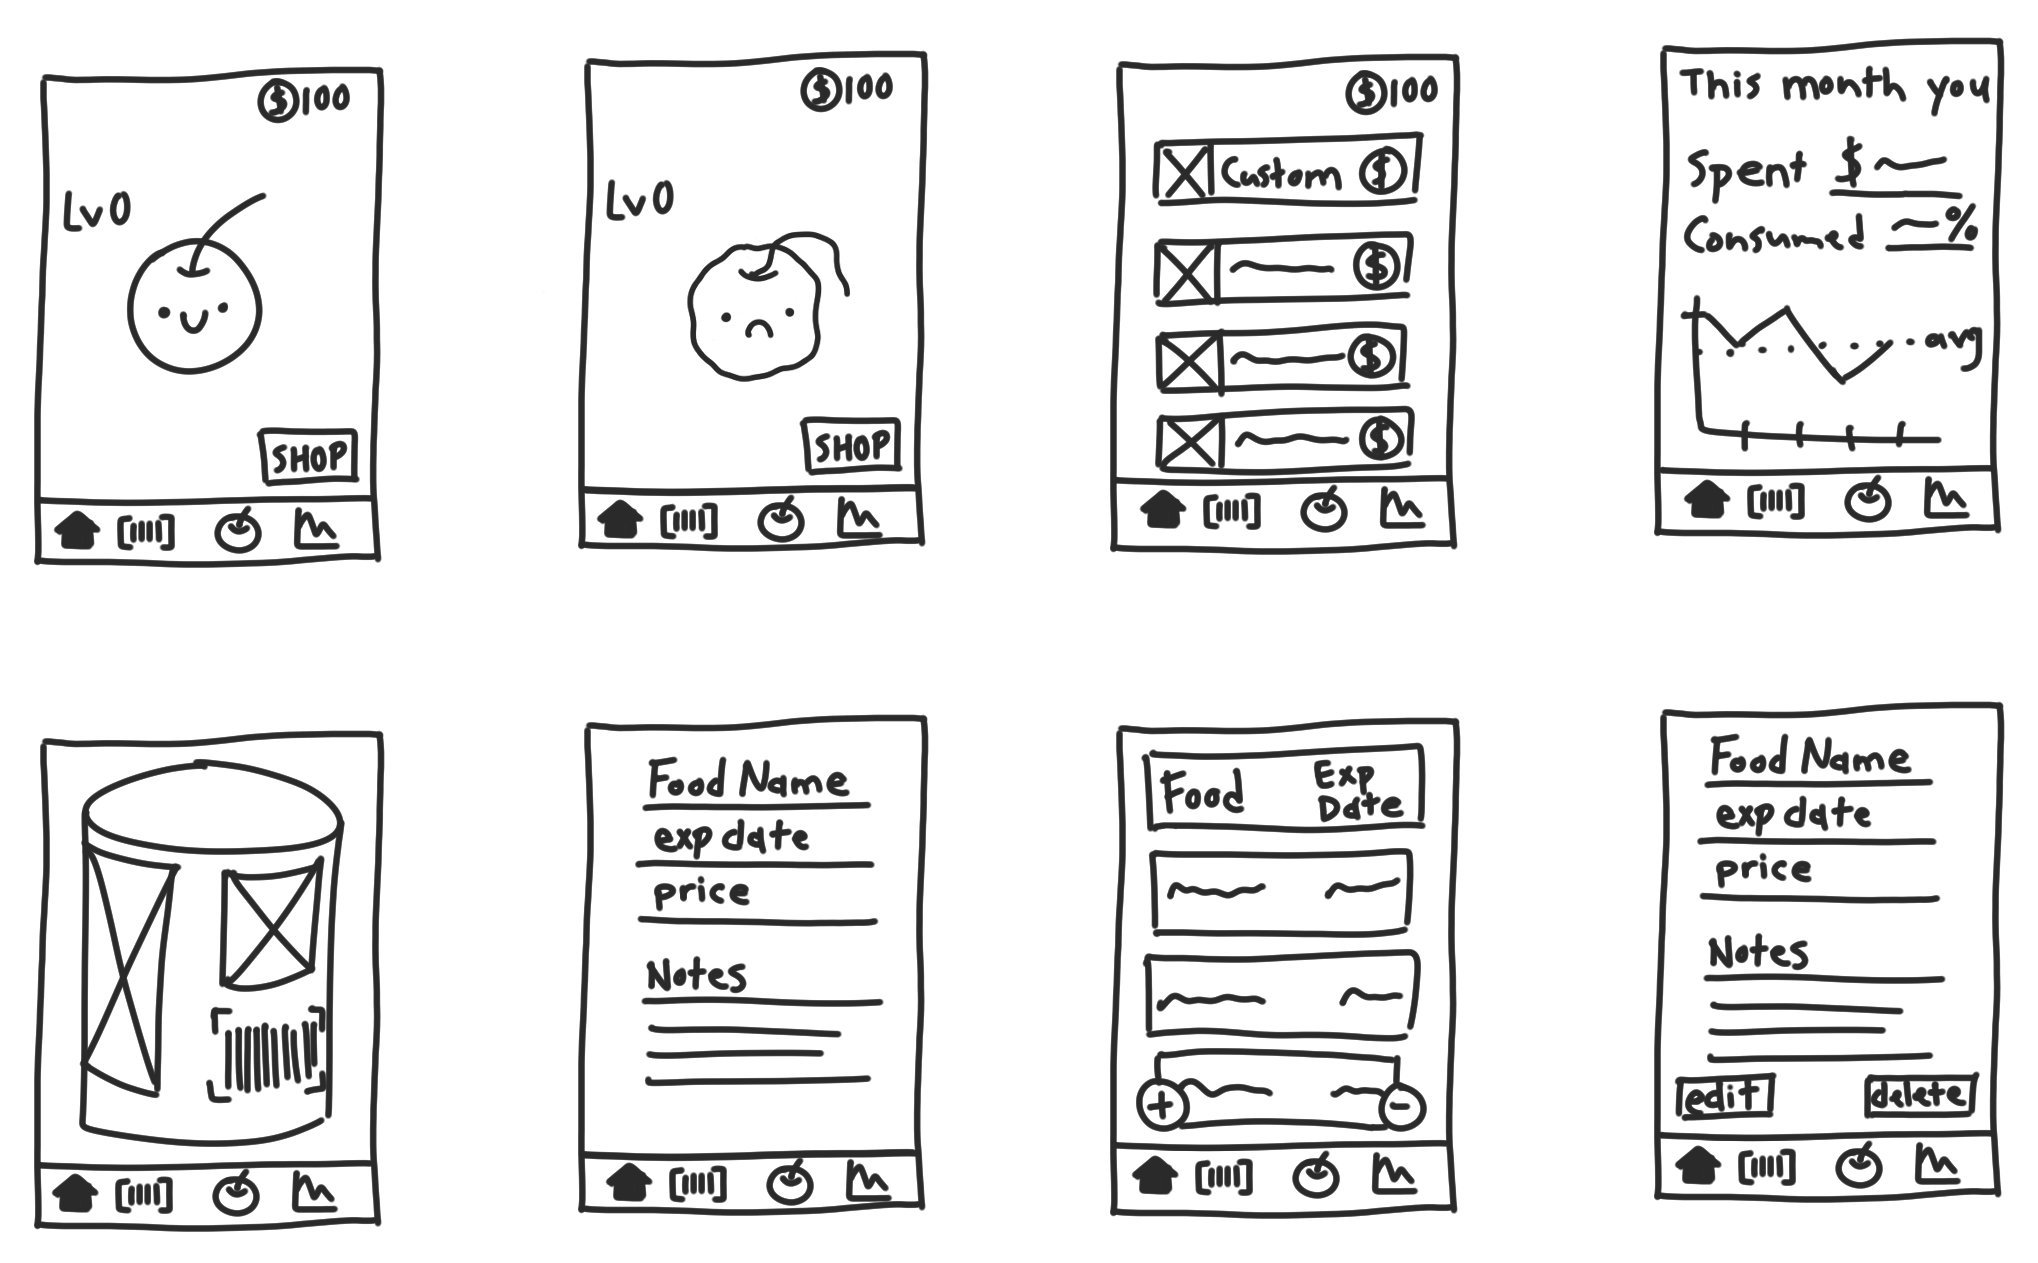 $100
Lv0
SHOP
$100
Lv0
SHOP
$100
Custom $
$
$
$
This month you
Spent $
Consumed %
avg
Food Name
exp date
price
Notes
Food Exp Date
+ -
Food Name
exp date
price
Notes
edit delete